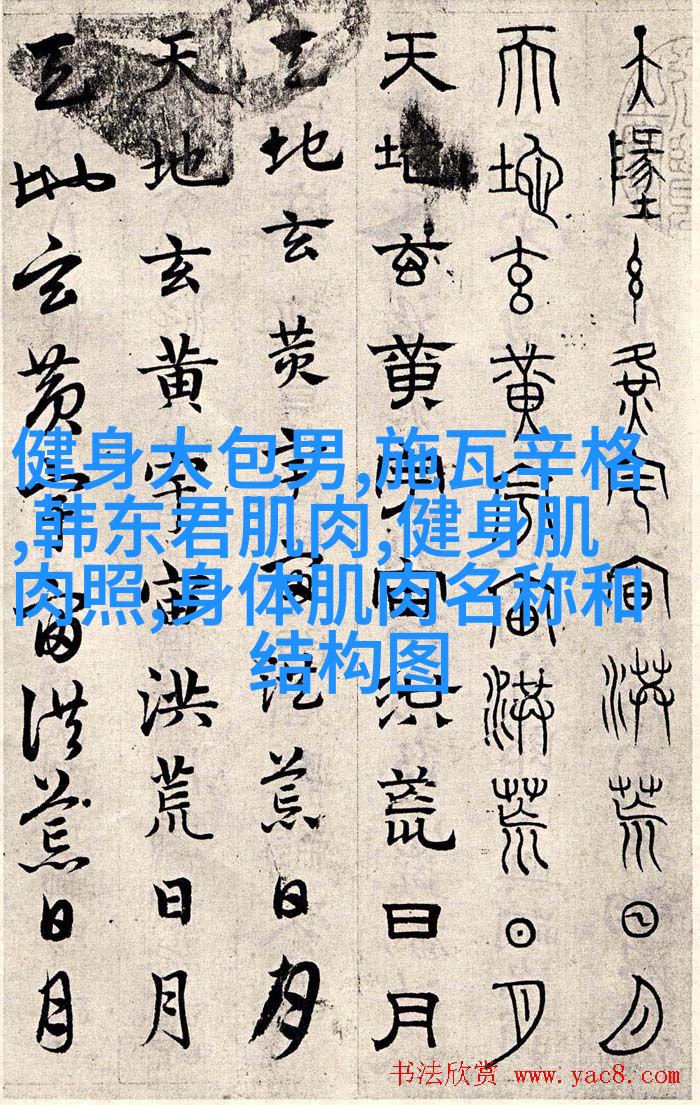 天地玄黄宇宙洪荒日月
天地玄黄宇宙洪荒日月
天地玄黄宇宙洪荒日月
天地玄黄宇宙洪荒日月
天地玄黄宇宙洪荒日月
天地玄黄宇宙洪荒日月
健身大包男,施瓦辛格
,韩东君肌肉,健身肌
肉照,身体肌肉名称和
结构图
书法欣赏 www.yac8.com